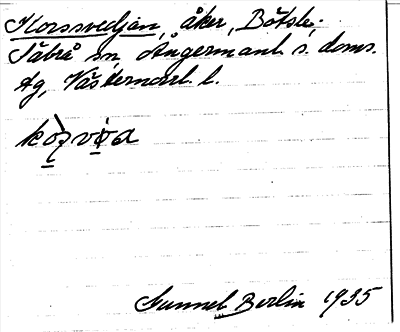 Korssvedjan, åker, Bölsle,
Säbrå sn, Ångermanl. s. doms.
åg, Västernorrl. l.
Gunnel Berlin 1935